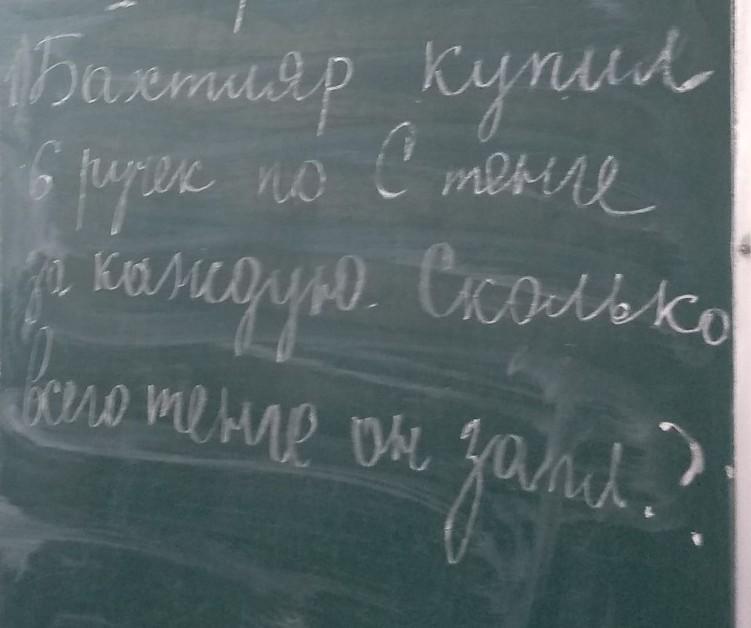 1) Бахтияр купил
6 ручек по С тенге
за каждую. Сколько
всего тенге он запл.?